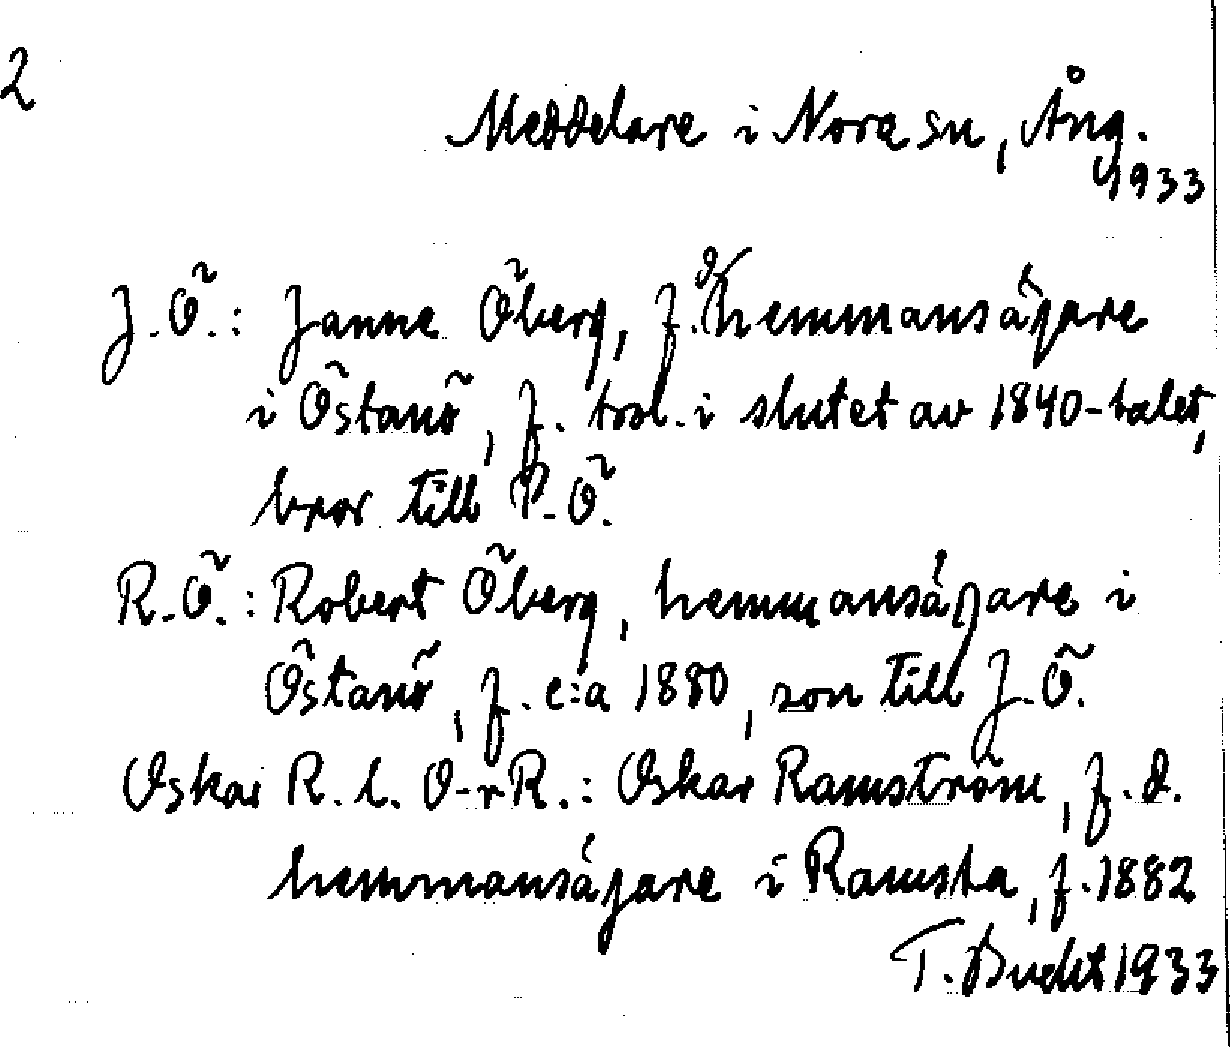 2
Meddelare i Nora sn, Ång.
1933
J. Ö.: Janne Öberg, f. d. hemmansägare
i Östanö, f. trol. i slutet av 1840-talet,
bror till P. Ö.
R. Ö.: Robert Öberg, hemmansägare i
Östanö, f. c:a 1880, son till J. Ö.
Oskar R. l. O-r R.: Oskar Ramström, f. d.
hemmansägare i Ramsta, f. 1882
T. Bucht 1933